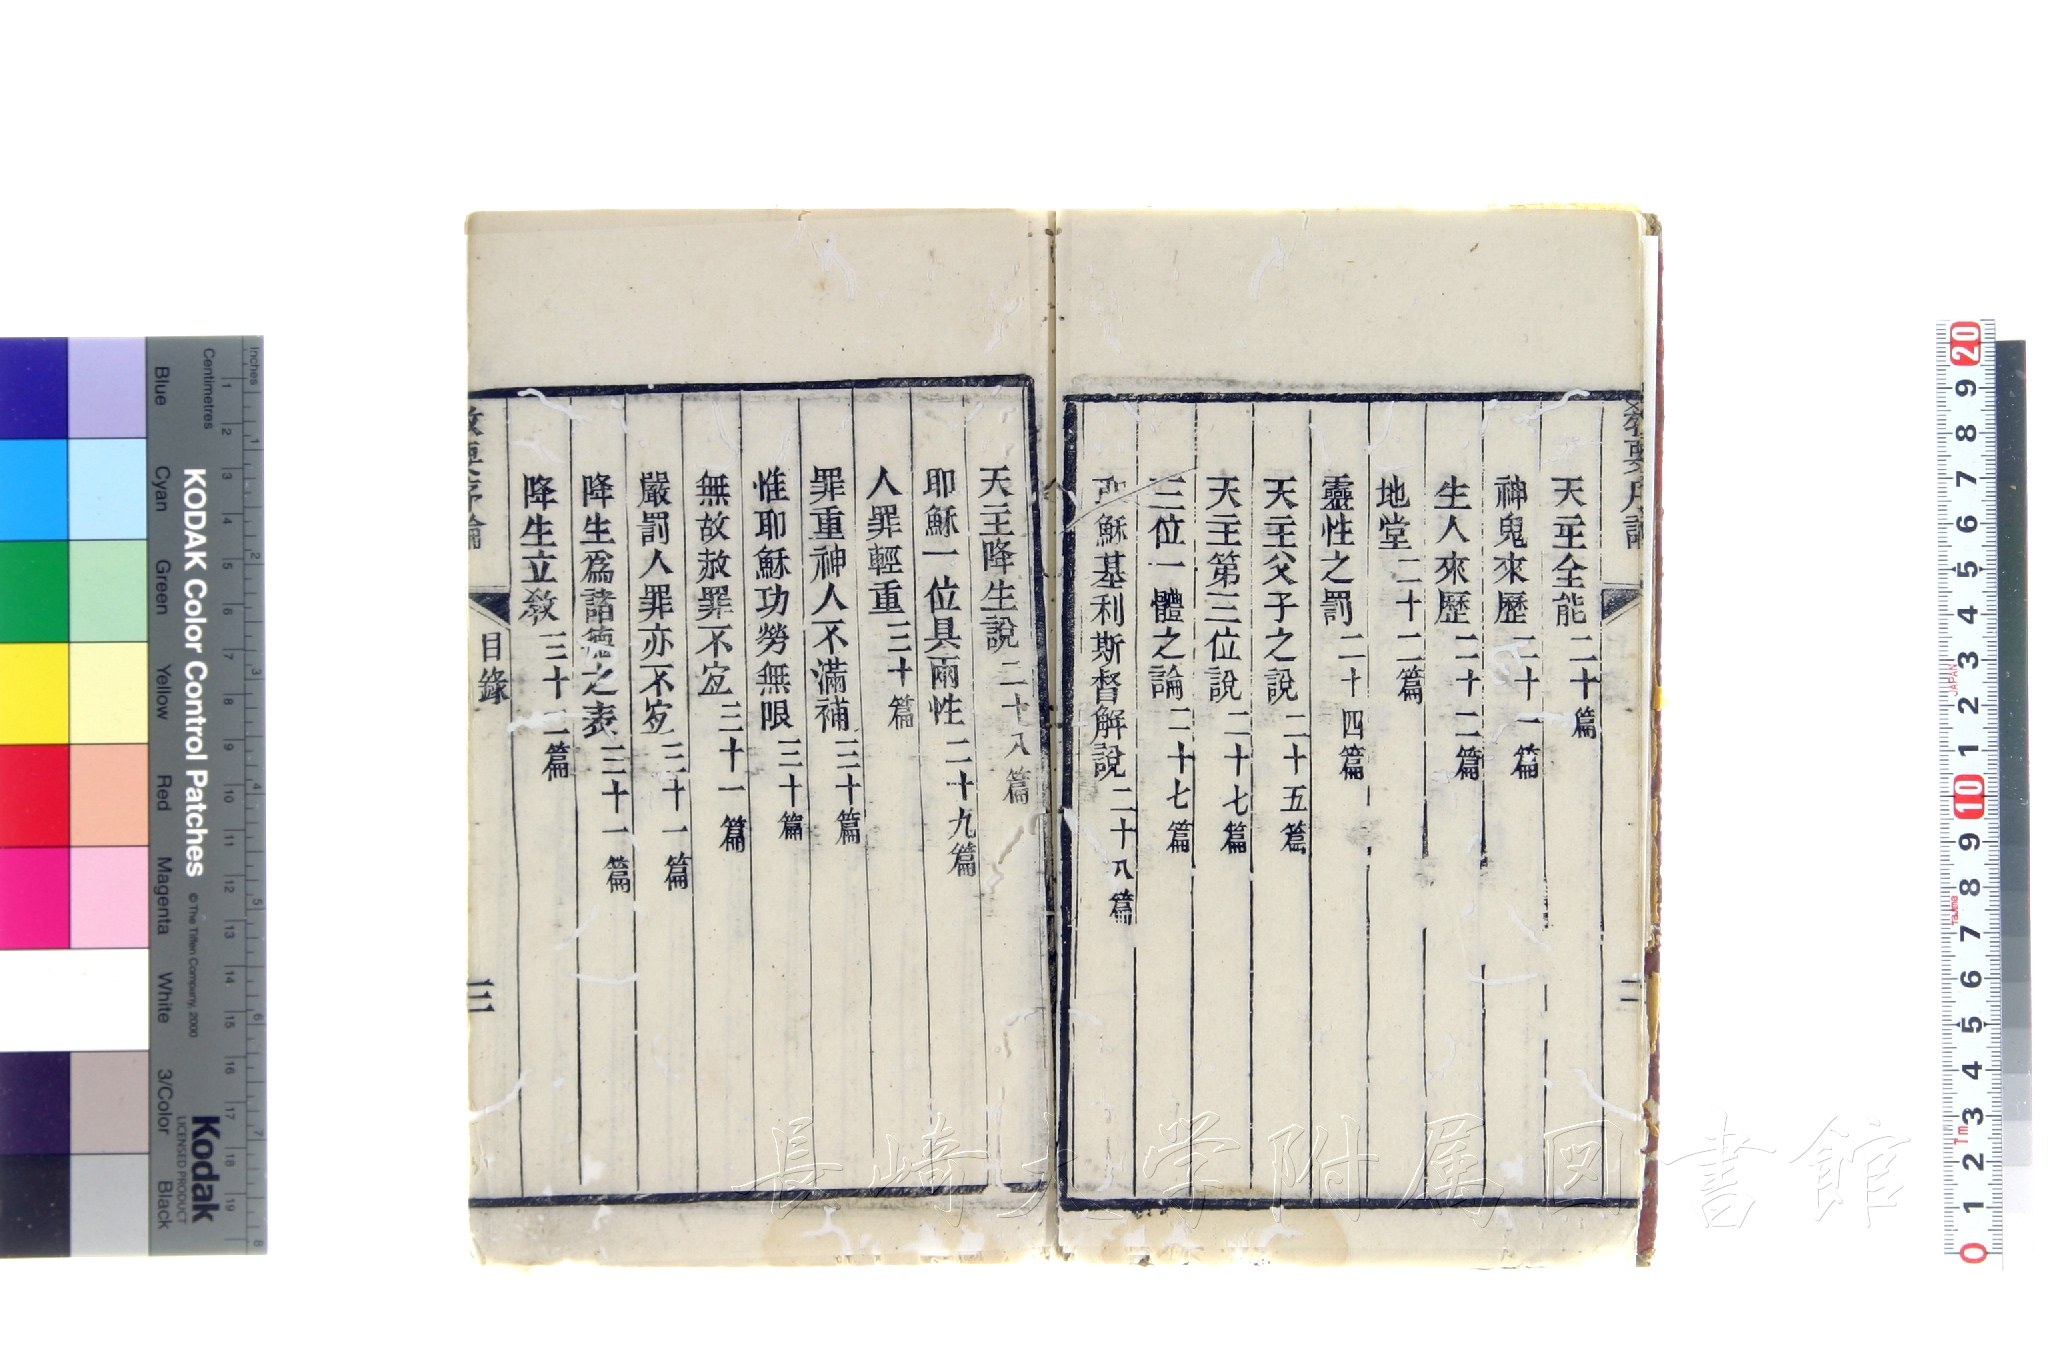 教要序論
二
天主全能 二十篇
神鬼來歷 二十一篇
生人來歷 二十二篇
地堂 二十二篇
靈性之罰 二十四篇
天主父子之說 二十五篇
天主第三位說 二十七篇
三位一體之論 二十七篇
耶穌基利斯督解說 二十八篇
天主降生說 二十八篇
耶穌一位具兩性 二十九篇
人罪輕重 三十篇
罪重神人不滿補 三十篇
惟耶穌功勞無限 三十篇
無故赦罪不宜 三十一篇
嚴罰人罪亦不宜 三十一篇
降生爲諸德之表 三十一篇
降生立敎 三十二篇
教要序論
目錄
三
長崎大学附属図書館
Inches
Centimetres
KODAK Color Control Patches
© The Tiffen Company, 2000
Kodak
LICENSED PRODUCT
Blue
Cyan
Green
Yellow
Red
Magenta
White
3/Color
Black
1 2 3 4 5 6 7 8 9 10 11 12 13 14 15 16 17 18 19
1 2 3 4 5 6 7 8
20 9 8 7 6 5 4 3 2 1 10 9 8 7 6 5 4 3 2 1 0
JAPAN
Tajima
7m